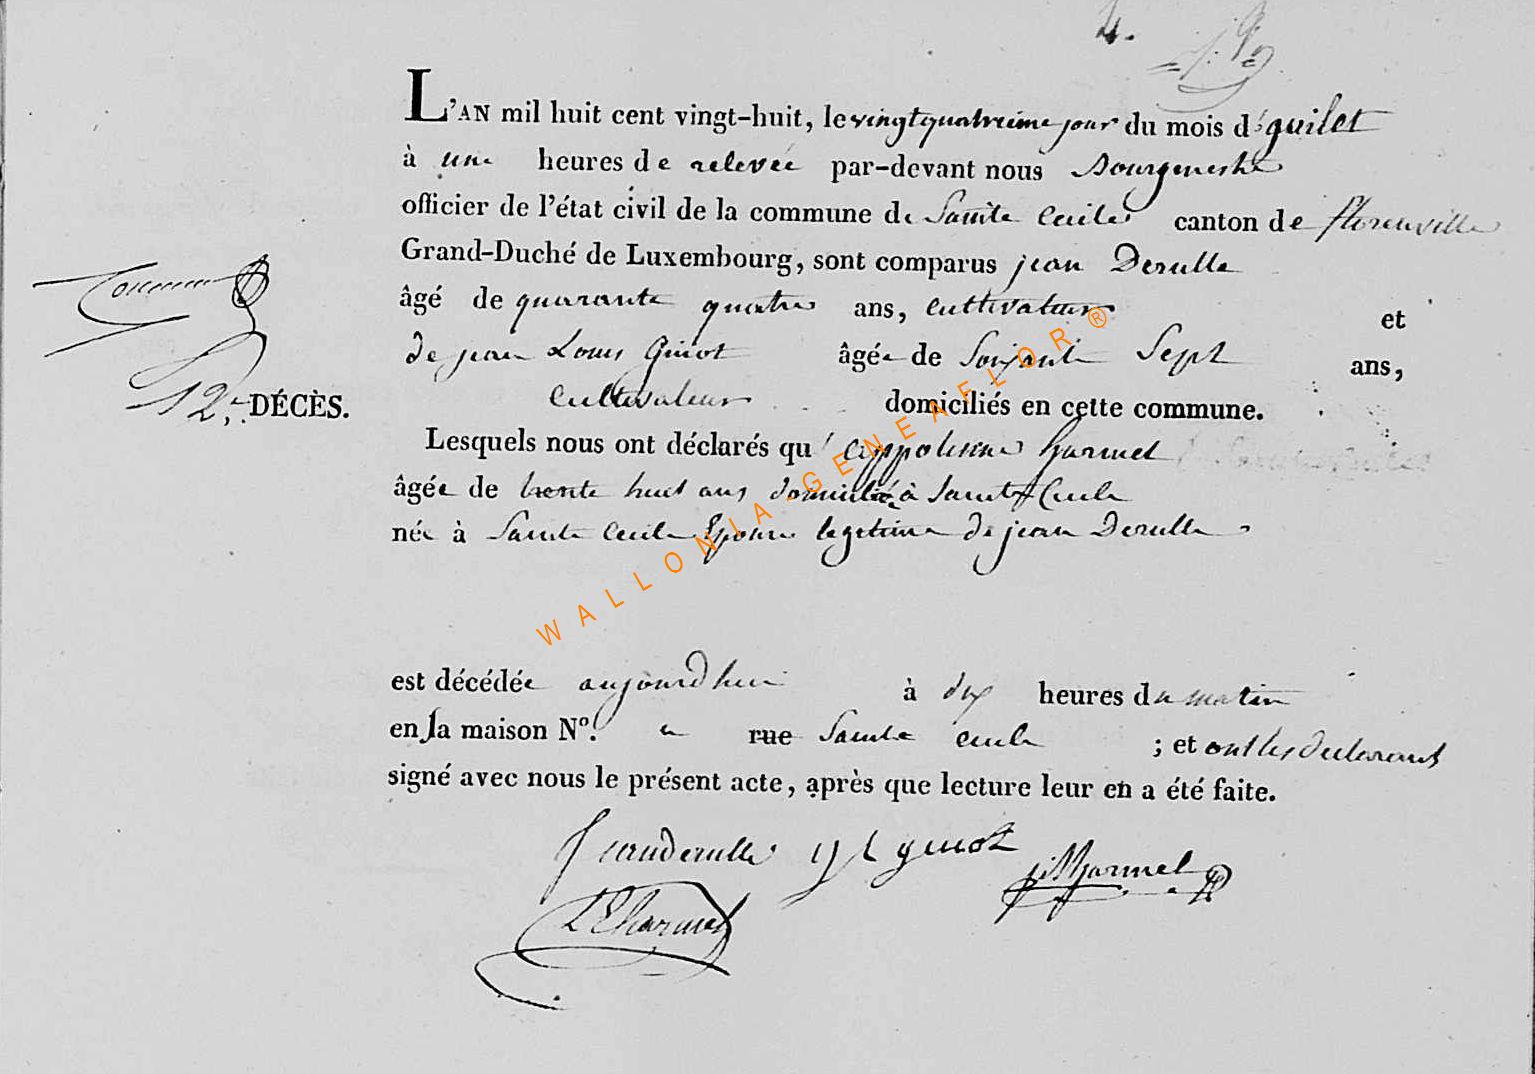 4.
L'AN mil huit cent vingt-huit, le vingtquatreime jour du mois de guilet
à une heures de relevée par-devant nous Bourgmestre
officier de l'état civil de la commune de Sainte Cecile canton de florenville
Grand-Duché de Luxembourg, sont comparus jean Derulle
âgé de quarante quatre ans, cultivateur et
de jean Louis Guiot âgée de Soixante Sept ans,
12e. DÉCÈS.
cultivateur domiciliés en cette commune.
Lesquels nous ont déclarés qu' harmel
âgée de trente huit ans domiciliée à Sainte Cecile
née à Sainte Cecile Epouse legitime de jean Derulle
est décédée aujourdhui à dix heures du matin
en la maison Nº. rue Sainte Cecile ; et ont les declarants
signé avec nous le présent acte, après que lecture leur en a été faite.
jean derulle j L guiot
harmel
harmel
WALLONIA-GENEAFLOR®